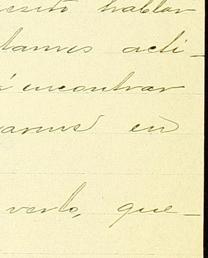 esito hablar
tamos acti-
á encontrar
garnos en
verlo, que-